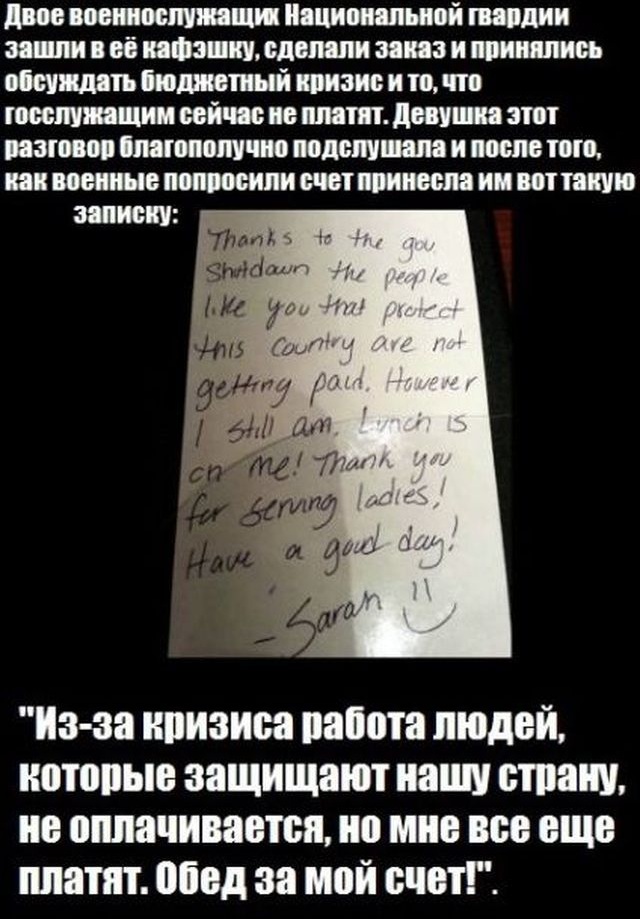 Двое военнослужащих Национальной гвардии
зашли в её кафэшку, сделали заказ и принялись
обсуждать бюджетный кризис и то, что
госслужащим сейчас не платят. Девушка этот
разговор благополучно подслушала и после того,
как военные попросили счет принесла им вот такую
записку:
Thanks to the gov.
Shutdown the people
like you that protect
this country are not
getting paid. However
I still am. Lunch is
on me! Thank you
for serving ladies!
Have a good day!
- Sarah
"Из-за кризиса работа людей,
которые защищают нашу страну,
не оплачивается, но мне все еще
платят. Обед за мой счет!".